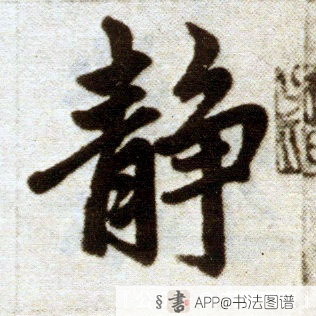 静
§書 APP@书法图谱